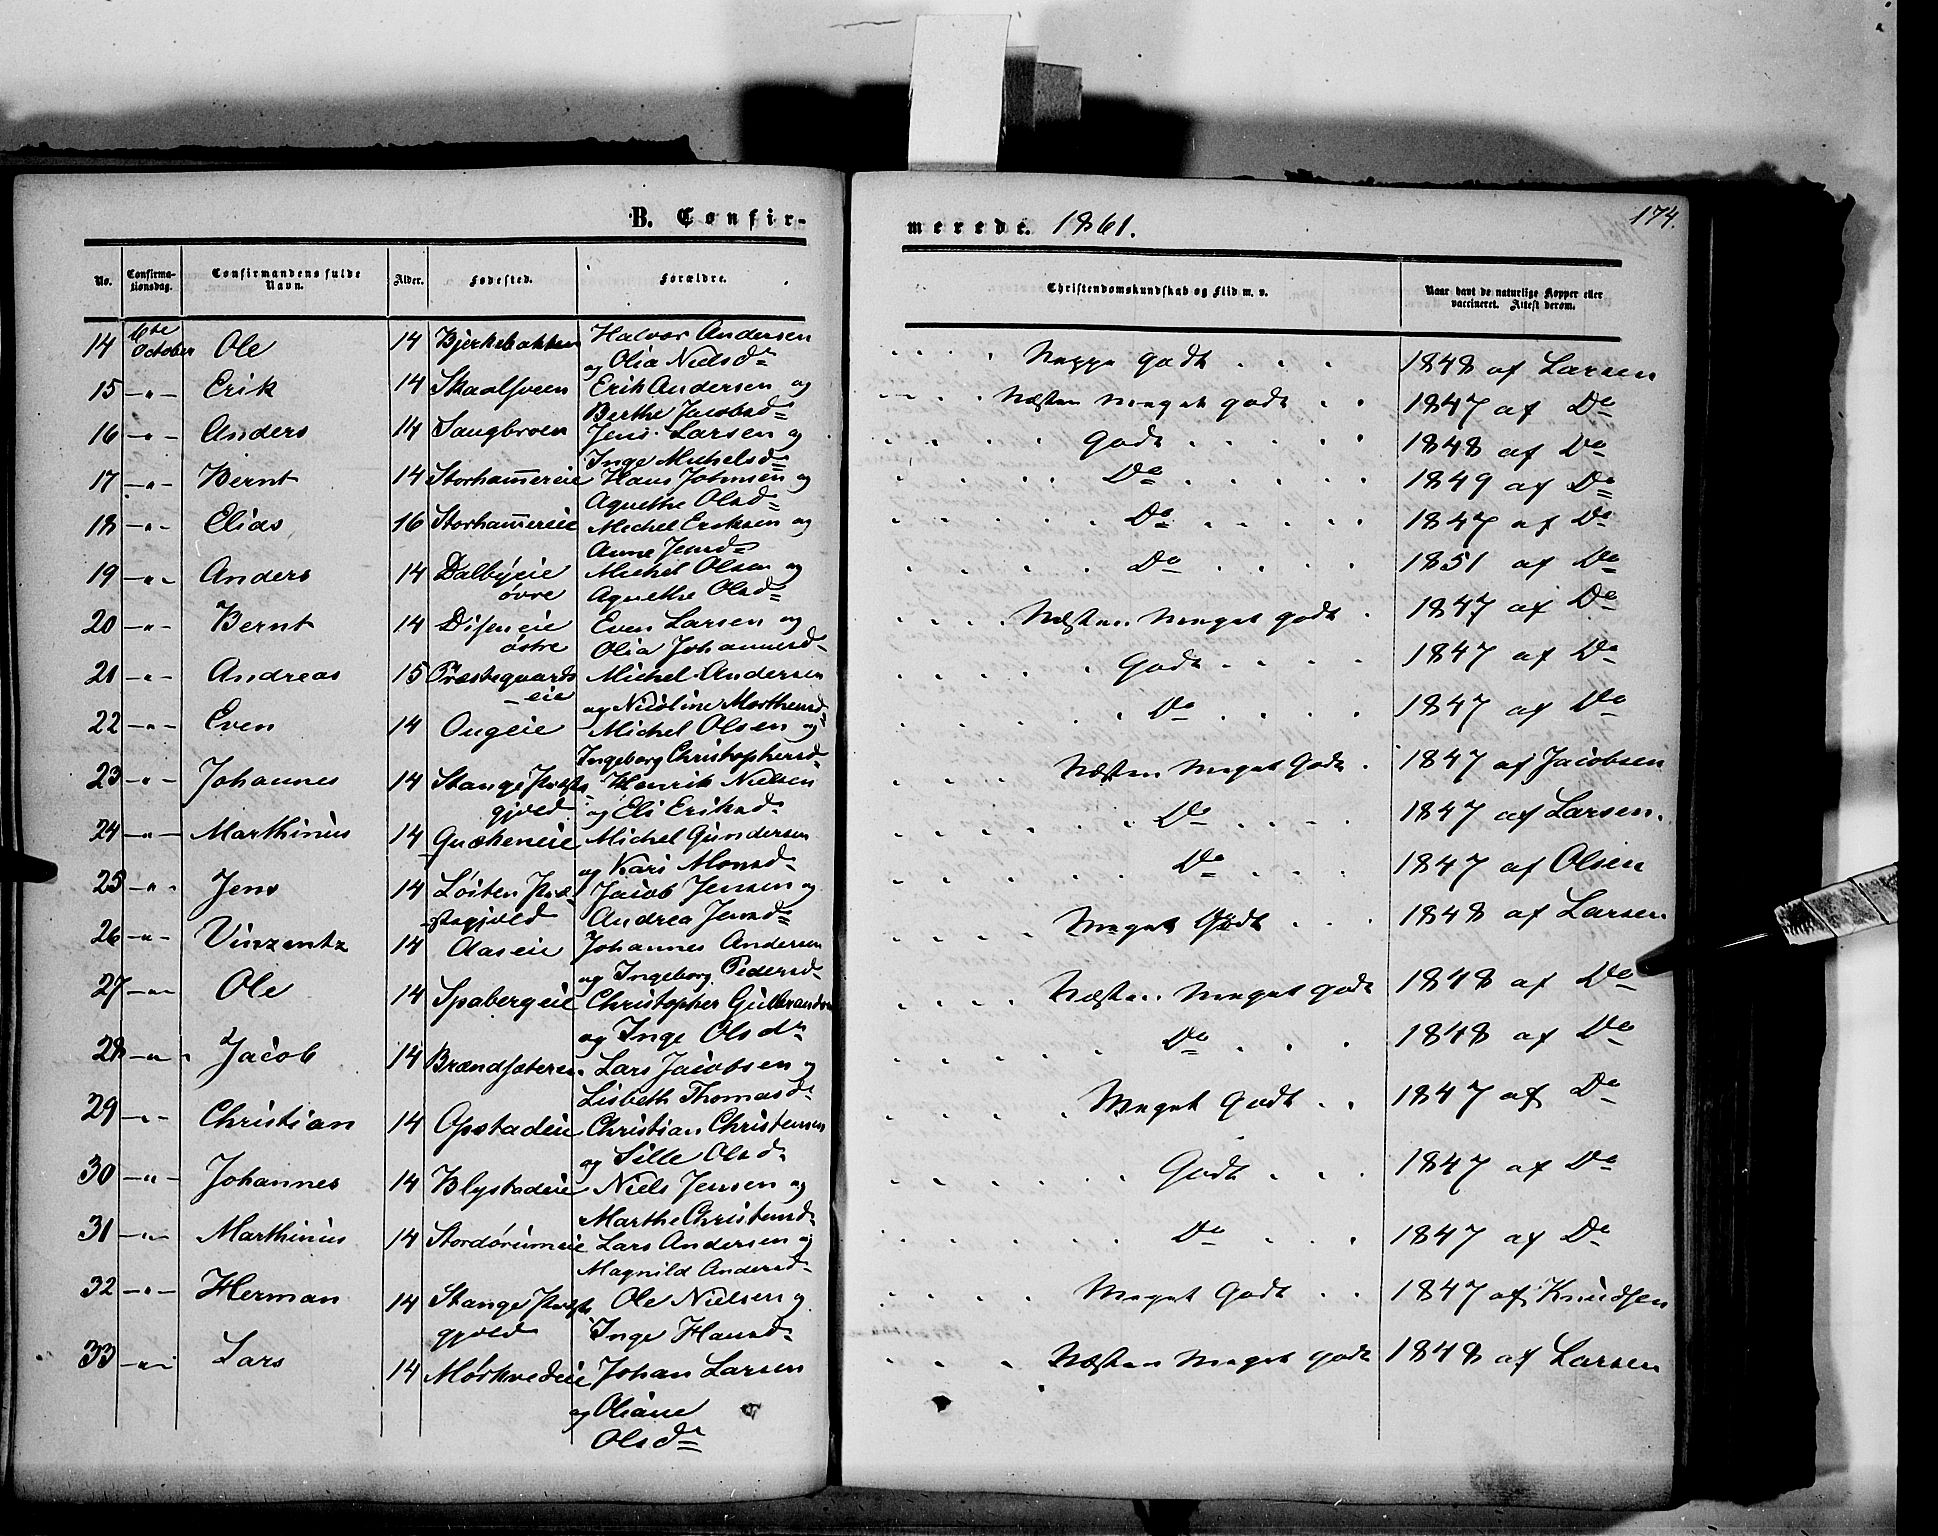 B. Confir-
merede. 1861.
174.
No.
Confirma-
tionsdag.
Confirmandens fulde
Navn.
Alder.
Fødested.
Forældre.
Christendomskundskab og Flid m. v.
Naar havt de naturlige Kopper eller
vaccineret. Attest derom.
14 6te October Ole 14 Bjerkebakken Halvor Andersen
og Olia Nielsdr Neppe godt 1848 af Larsen
15 -"- Erik 14 Skaalsveen Erik Andersen og
Berthe Jacobsd Næsten Meget godt 1847 af Do
16 -"- Anders 14 Sangbroen Jens Larsen og
Inge Michelsd Godt 1848 af Do
17 -"- Bernt 14 Storhammereie Hans Johnsen og
Agnethe Olsd Do 1849 af Do
18 -"- Elias 16 Storhammereie Michel Eriksen og
Anne Jensd Do 1847 af Do
19 -"- Anders 14 Dalbyeie
øvre Michel Olsen og
Agnethe Olsd Do 1851 af Do
20 -"- Bernt 14 Diseneie
østre Even Larsen og
Olia Johannesd Næsten Meget godt 1847 af Do
21 -"- Andreas 15 Præstegaards
eie Michel Andersen
og Nicoline Marthensd Godt 1847 af Do
22 -"- Even 14 Ougeie Michel Olsen og
Ingeborg Christophersd Do 1847 af Do
23 -"- Johannes 14 Stange Præste
gjæld Henrik Nielsen
og Eli Eriksd Næsten Meget Godt 1847 af Jacobsen
24 -"- Marthinius 14 Michel Gundersen
og Kari Monsd Do 1847 af Larsen.
25 -"- Jens 14 Løiten Præ
stegjæld Jacob Jensen og
Andrea Jensd Do 1847 af Olsen
26 -"- Vinzentz 14 Aaseie Johannes Andersen
og Ingeborg Pedersd Meget Godt 1848 af Larsen
27 -"- Ole 14 Spabergeie Christopher Gulbrandsen
og Inge Olsdr Næsten Meget godt 1848 af Do
28 -"- Jacob 14 Brændsæteren Lars Jacobsen og
Lisbeth Thomasd Do 1848 af Do
29 -"- Christian 14 Opstadeie Christian Christensen
og Sille Olsd Meget Godt 1847 af Do
30 -"- Johannes 14 Blystadeie Niels Jensen og
Marthe Christensd Godt 1847 af Do
31 -"- Marthinius 14 Lars Andersen og
Magnild Andersd Do 1847 af Do
32 -"- Herman 14 Stange Præste
gjæld Ole Nielsen og
Inge Hansd Meget Godt 1847 af Knudsen
33 -"- Lars 14 Mørkvedeie Johan Larsen
og Oliane
Olsdr Næsten Meget godt 1848 af Larsen